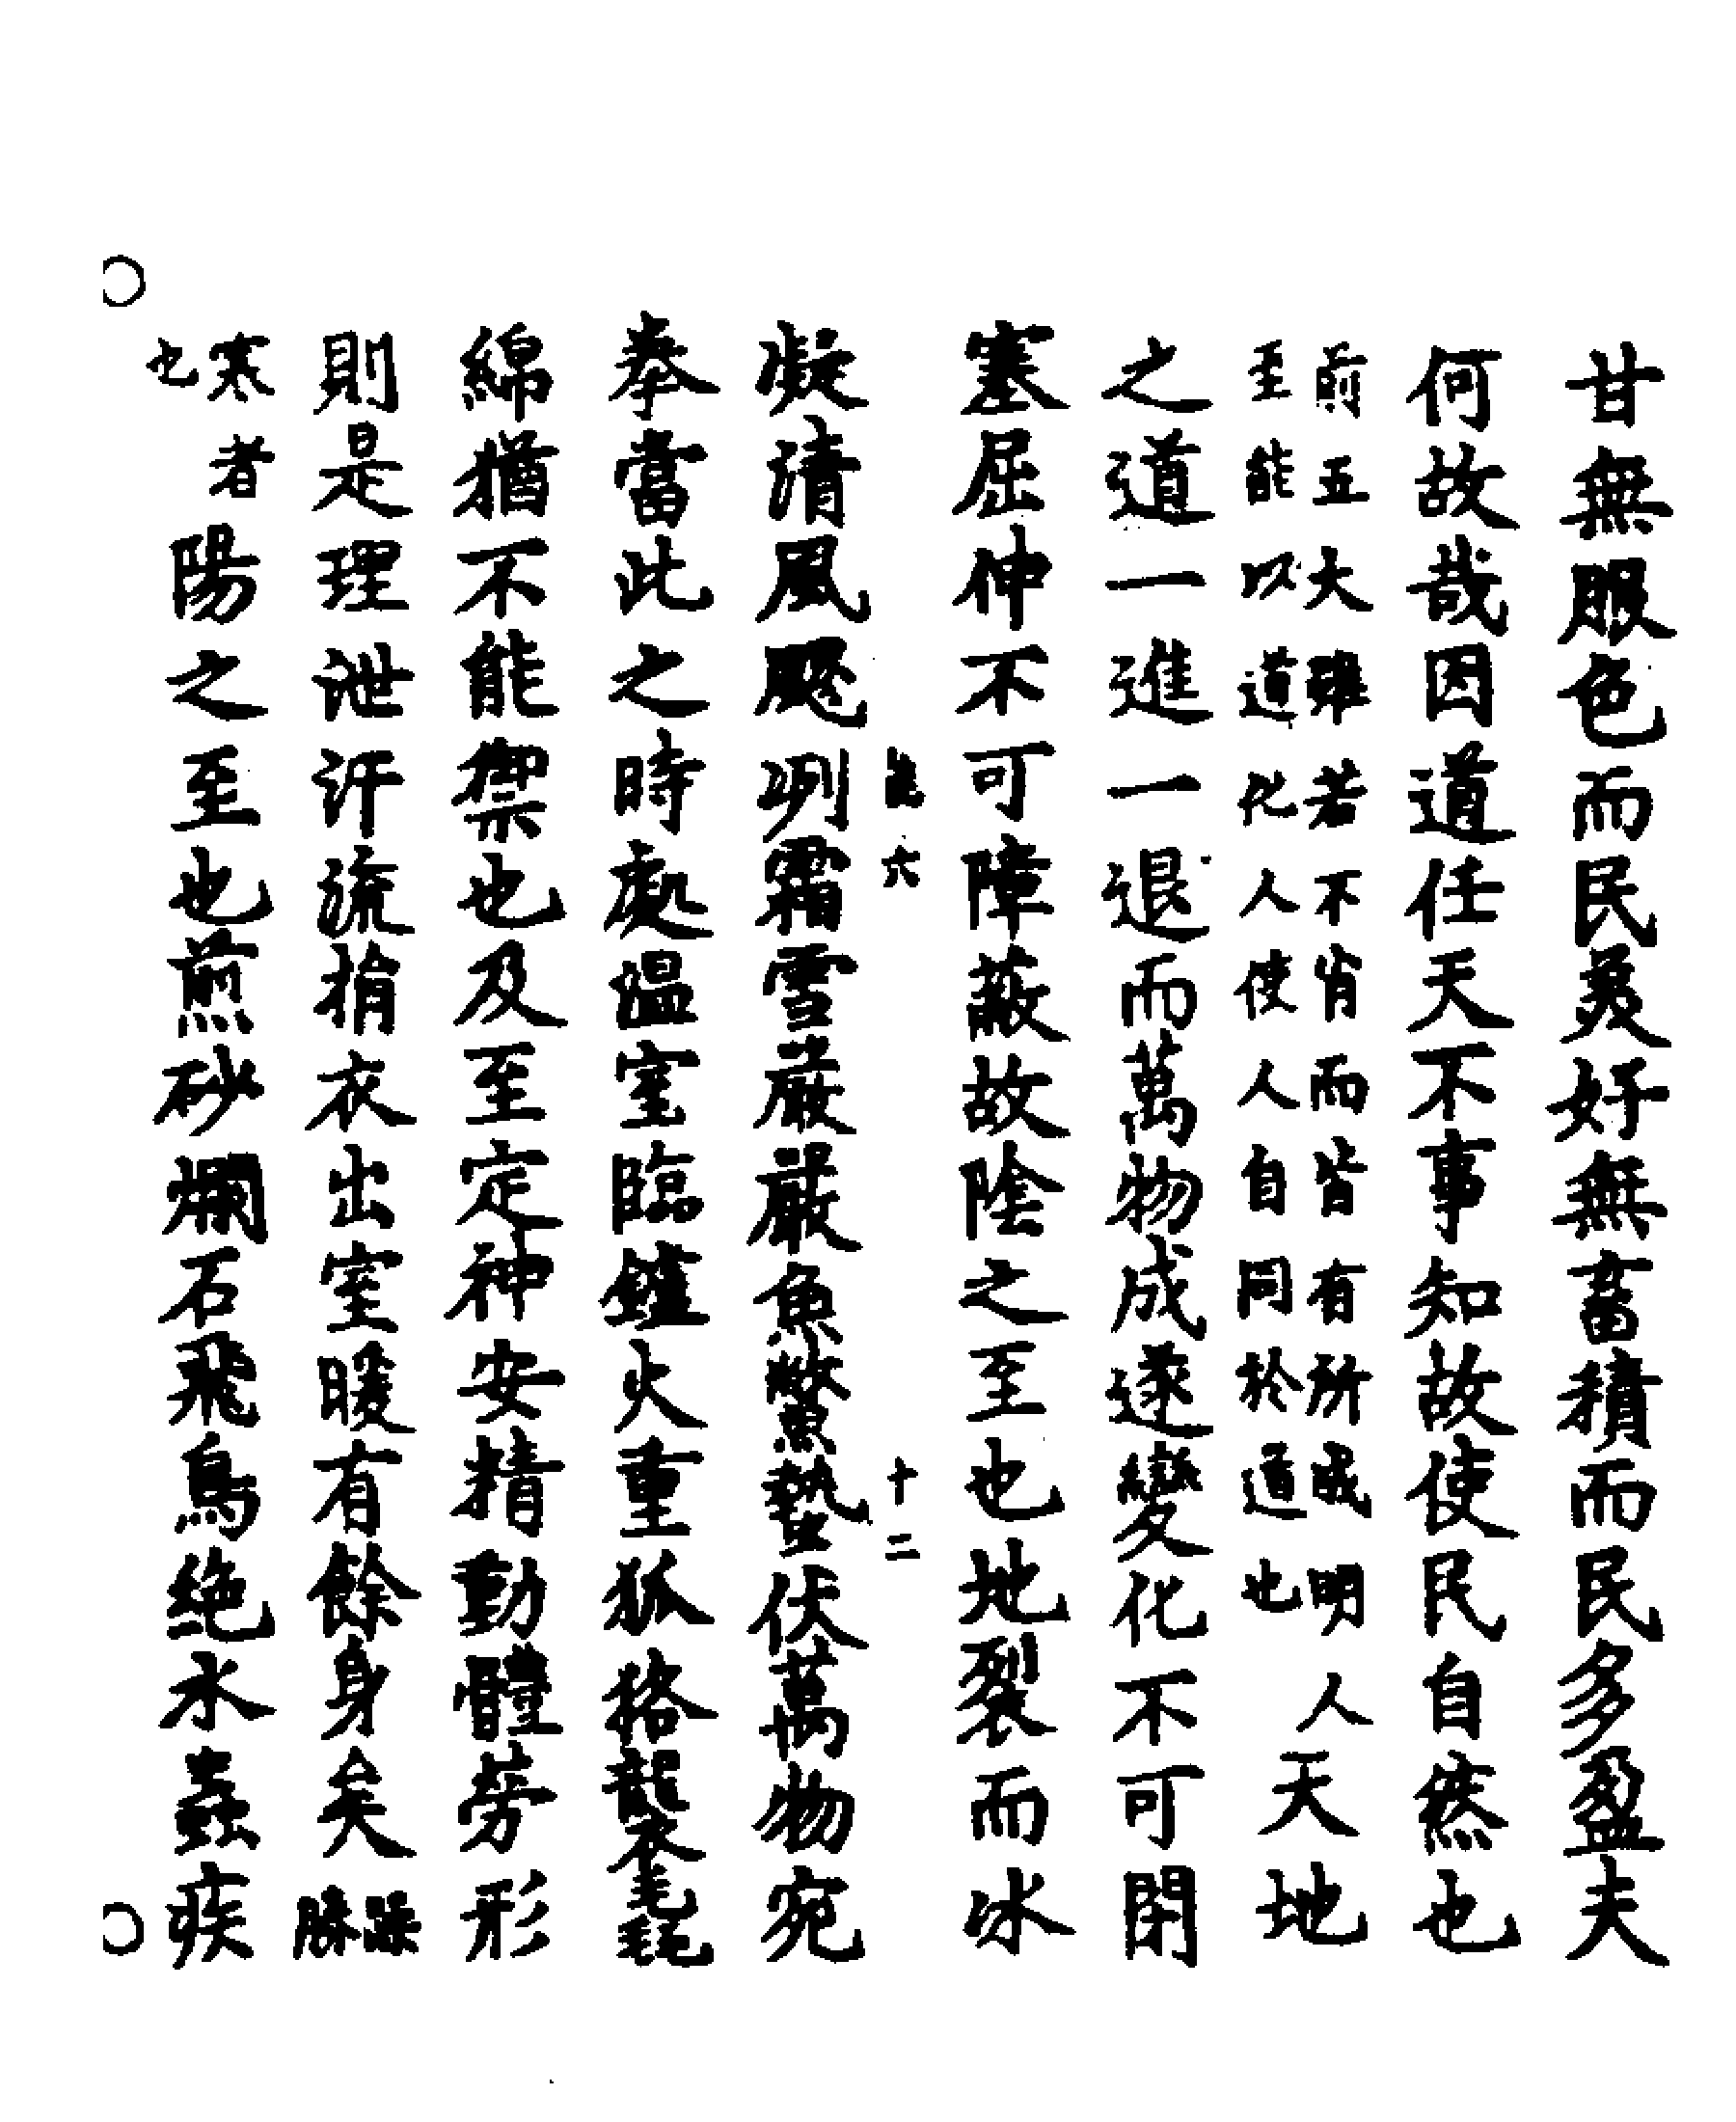 甘無服色而民美好無畜積而民多盈夫
何故哉因道任天不事知故使民自然也
前五大雖若不肖而皆有所明人
至能以道化人使人自同於道也
天地
之道一進一退而萬物成遂變化不可閉
塞屈伸不可障蔽故陰之至也地裂而冰
六 十二
凝清風飂冽霜雪嚴嚴魚鱉蟄伏萬物宛
拳當此之時處溫室臨鑪火重狐狢襲毳
綿猶不能禦也及至定神安精動體勞形
則是理泄汗流捐衣出室暖有餘身矣躁勝
寒者也陽之至也煎砂爛石飛鳥絕水蟲疾